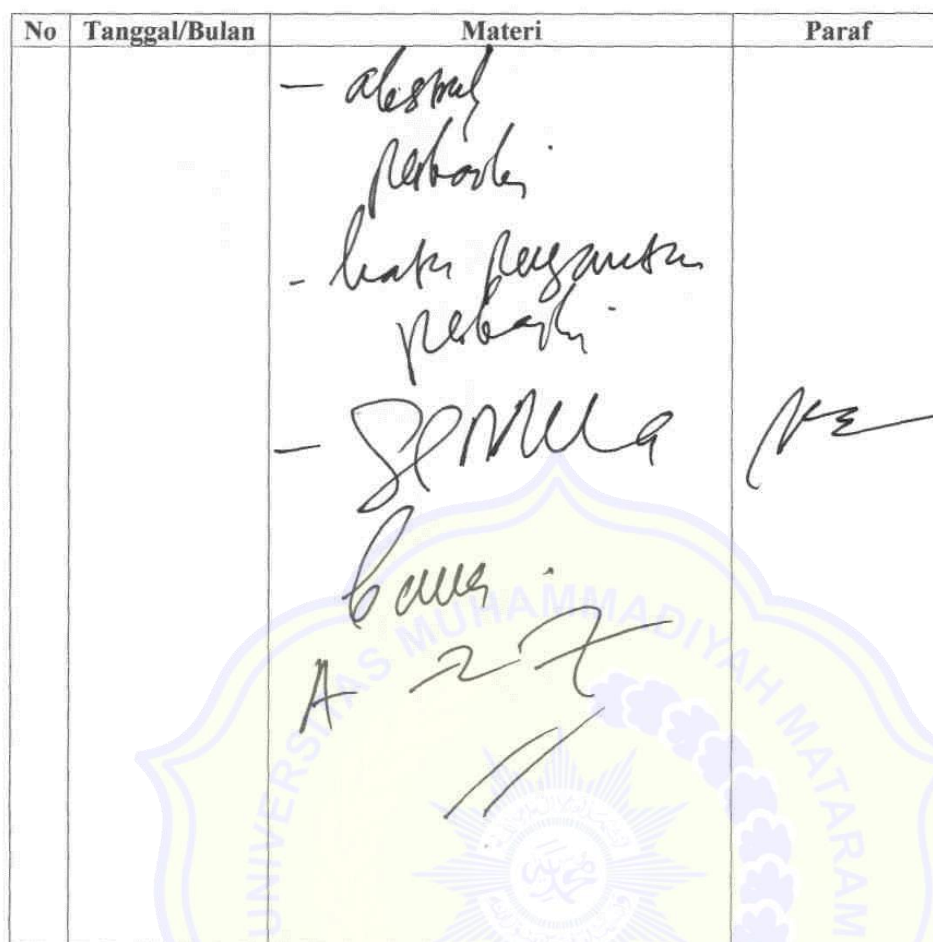 No Tanggal/Bulan Materi Paraf
- abstrak
perbaiki
- kata pengantar
perbaiki
- Semua
A
UNIVERSITAS MUHAMMADIYAH MATARAM